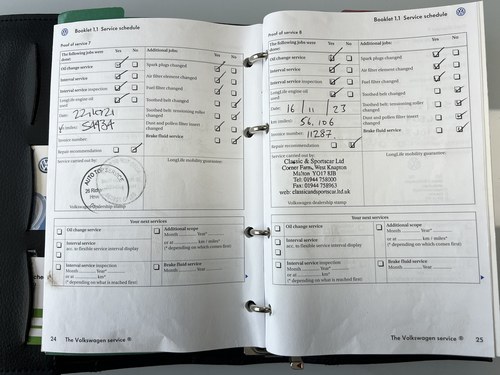 Booklet 1.1 Service schedule
Proof of service 7
The following jobs were done: Yes No Additional jobs: Yes No
Oil change service Spark plugs changed
Interval service Air filter element changed
Interval service inspection Fuel filter changed
LongLife engine oil used Toothed belt changed
Date: Toothed belt tensioning roller changed
km (miles): Dust and pollen filter insert changed
Invoice number: Brake fluid service
Repair recommendation
Service carried out by: LongLife mobility guarantee:
Volkswagen dealership stamp
Your next services
Oil change service Additional scope
Month Year*
Interval service or at km / miles*
acc. to flexible service interval display (*depending on which comes first)
Interval service inspection Brake fluid service
Month Year* Month Year
or at km*
(*depending on what is reached first)
24 The Volkswagen service
Booklet 1.1 Service schedule
Proof of service 8
The following jobs were done: Yes No Additional jobs: Yes No
Oil change service Spark plugs changed
Interval service Air filter element changed
Interval service inspection Fuel filter changed
LongLife engine oil used Toothed belt changed
16 / 11 / 23 Toothed belt tensioning roller changed
km (miles): 56,106 Dust and pollen filter insert changed
Invoice number: 11287 Brake fluid service
Repair recommendation
Service carried out by: LongLife mobility guarantee:
Classic & Sportscar Ltd
Corner Farm, West Knapton
Malton YO17 8JB
Tel: 01944 758000
Fax: 01944 758963
web: classicandsportscar.ltd.uk
Volkswagen dealership stamp
Your next services
Oil change service Additional scope
Month Year*
Interval service or at km / miles*
acc. to flexible service interval display (*depending on which comes first)
Interval service inspection Brake fluid service
Month Year* Month Year
or at km*
(*depending on what is reached first)
The Volkswagen service 25